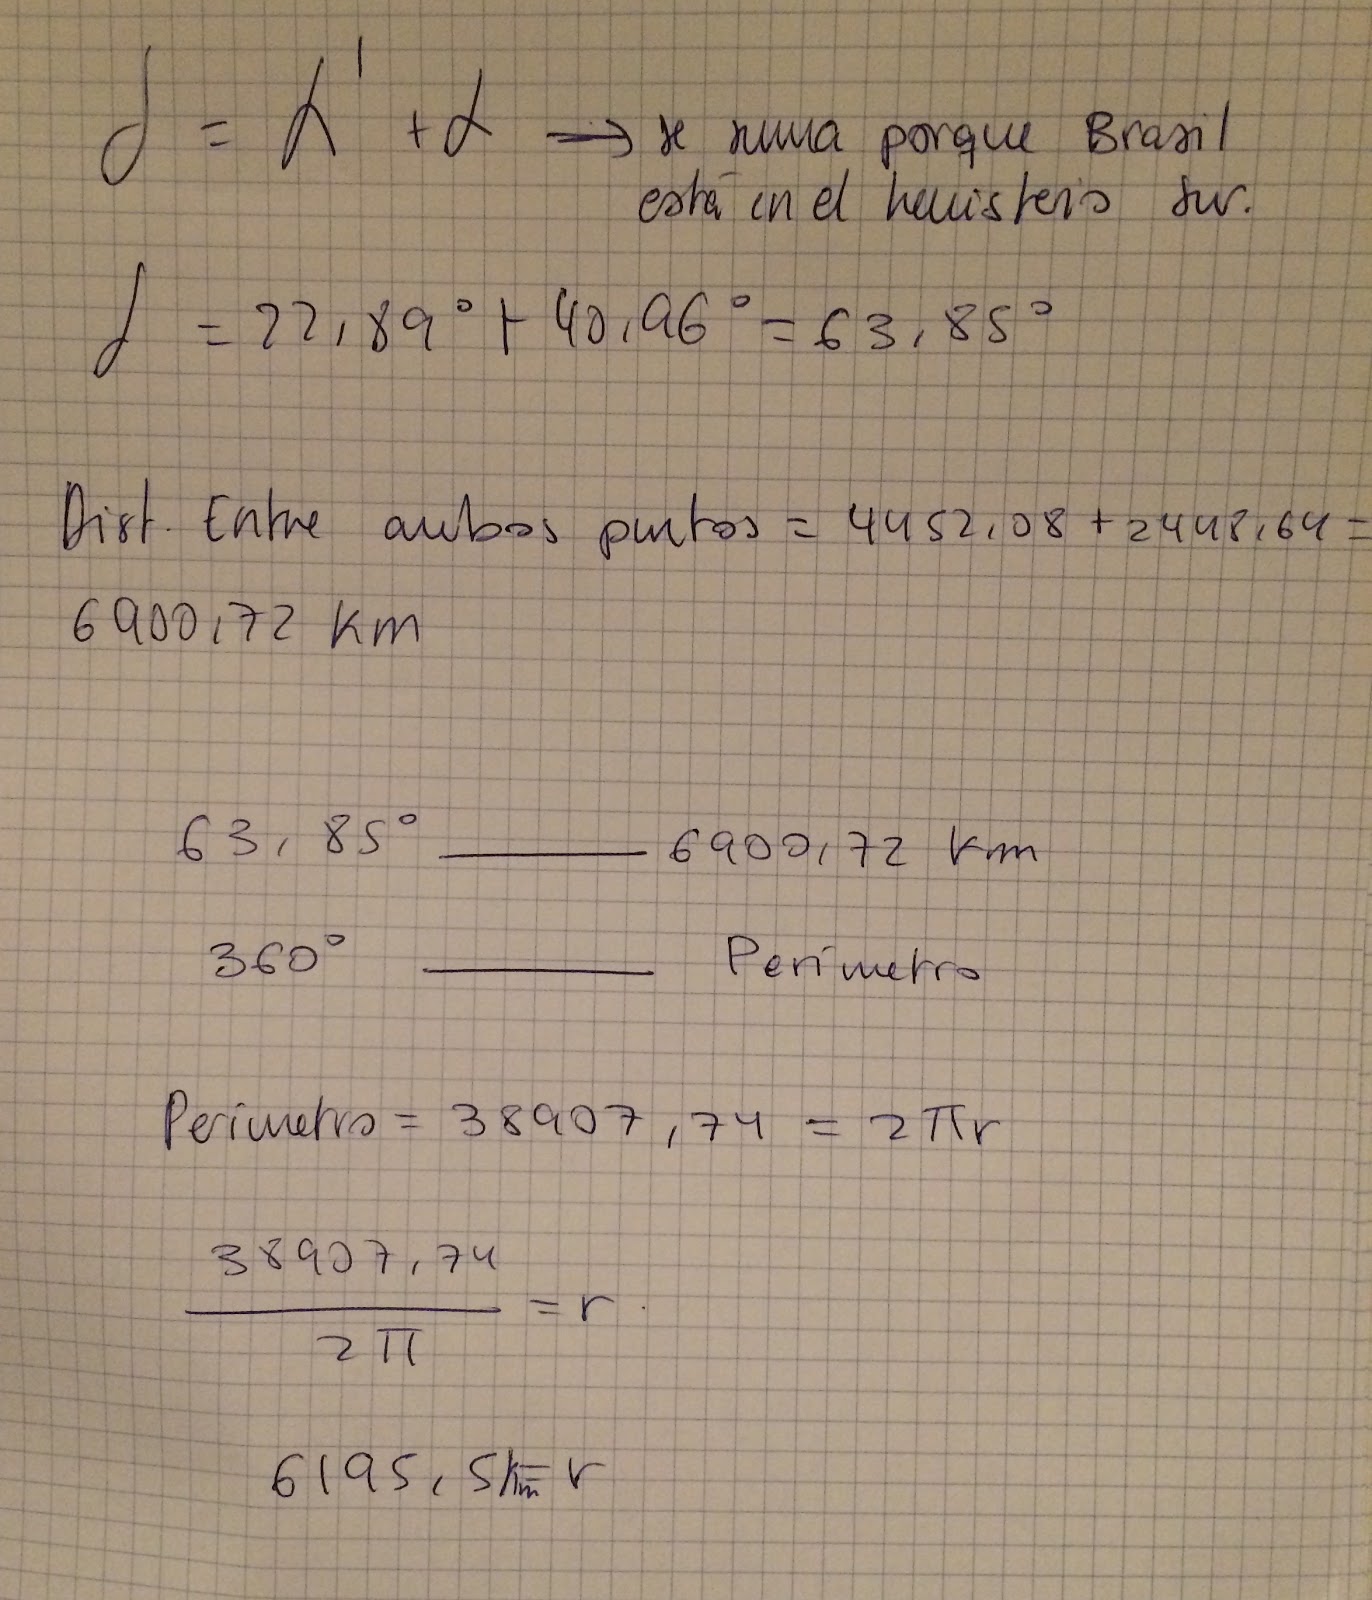 δ = α' + α → se suma porque Brasil
está en el hemisferio sur.
δ = 22,89° + 40,96° = 63,85°
Dist. Entre ambos puntos = 4452,08 + 2448,64 =
6900,72 Km
63,85° —— 6900,72 Km
360° —— Perímetro
Perímetro = 38907,74 = 2πr
38907,74
2π
= r.
6195,5 km = r